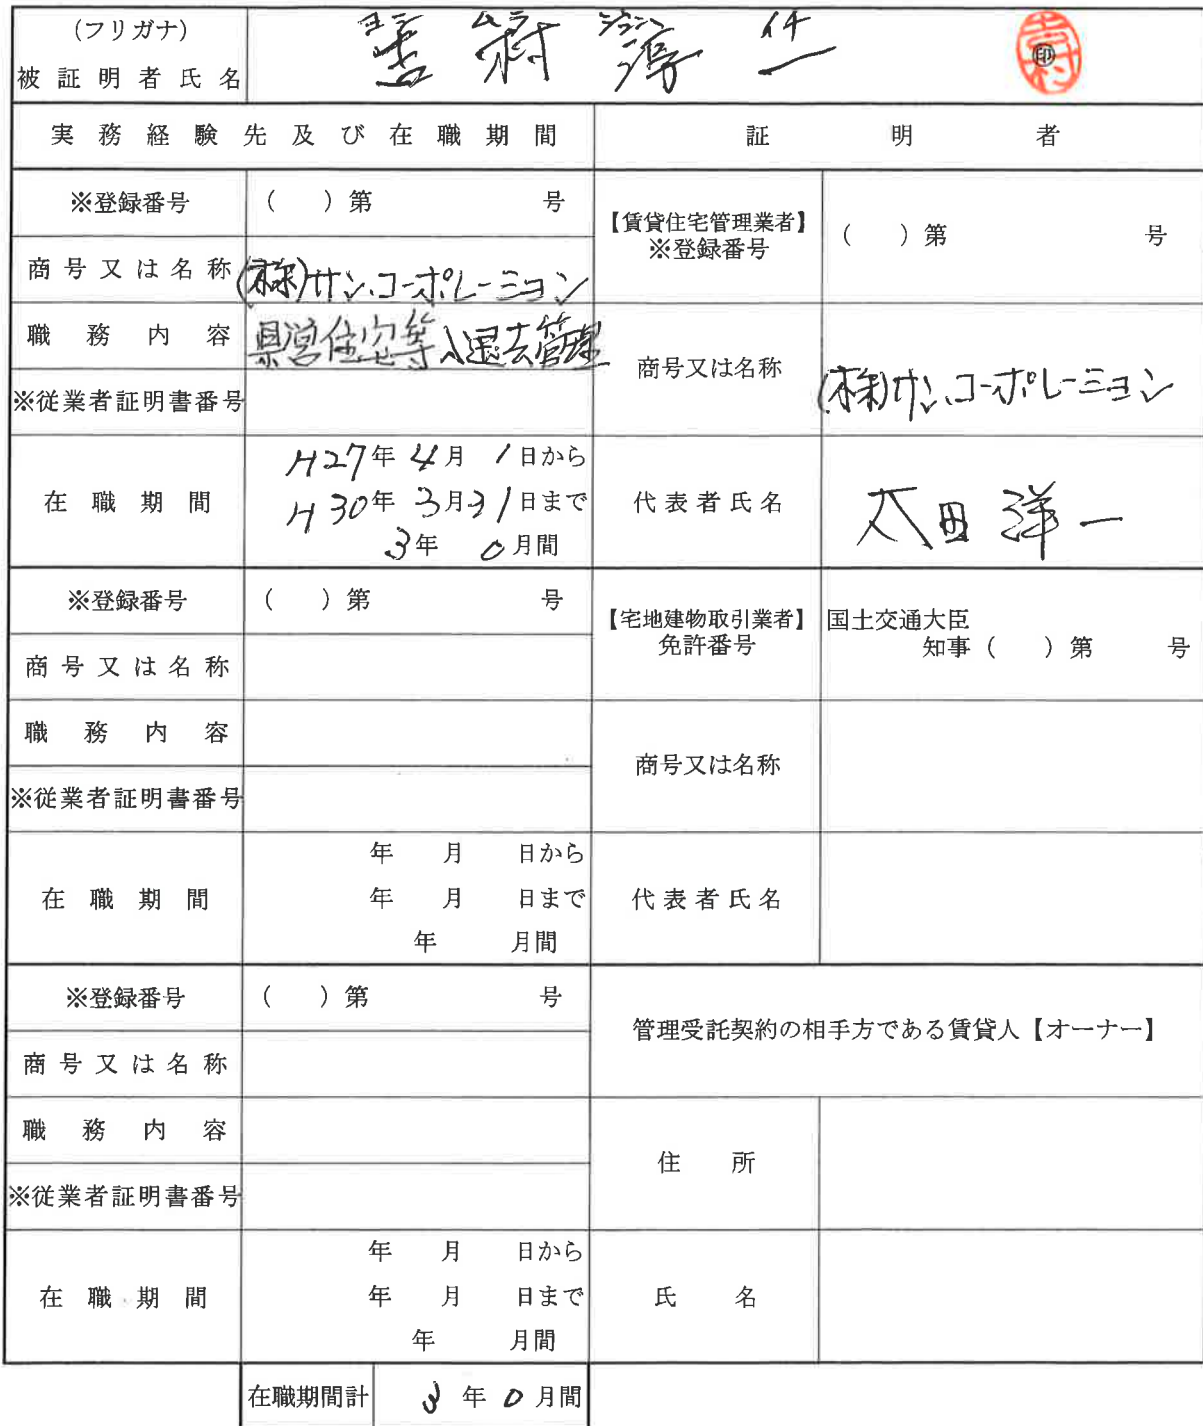 (フリガナ)
ヨシ ムラ ジュン イチ
被証明者氏名
村 一
印
実務経験先及び在職期間 証明者
※登録番号 ( )第 号
【賃貸住宅管理業者】
※登録番号 ( )第 号
商号又は名称 (株)サン.コーポレーション
職務内容 県営住宅等入退去管理
商号又は名称 (株)サン.コーポレーション
※従業者証明書番号
在職期間
H27年 4月 1日から
H30年 3月31日まで
3年 0月間
代表者氏名 太田 洋一
※登録番号 ( )第 号
【宅地建物取引業者】
免許番号
国土交通大臣
知事( )第 号
商号又は名称
職務内容
商号又は名称
※従業者証明書番号
在職期間
年 月 日から
年 月 日まで
年 月間
代表者氏名
※登録番号 ( )第 号
管理受託契約の相手方である賃貸人【オーナー】
商号又は名称
職務内容
住所
※従業者証明書番号
在職期間
年 月 日から
年 月 日まで
年 月間
氏名
在職期間計 3年0月間